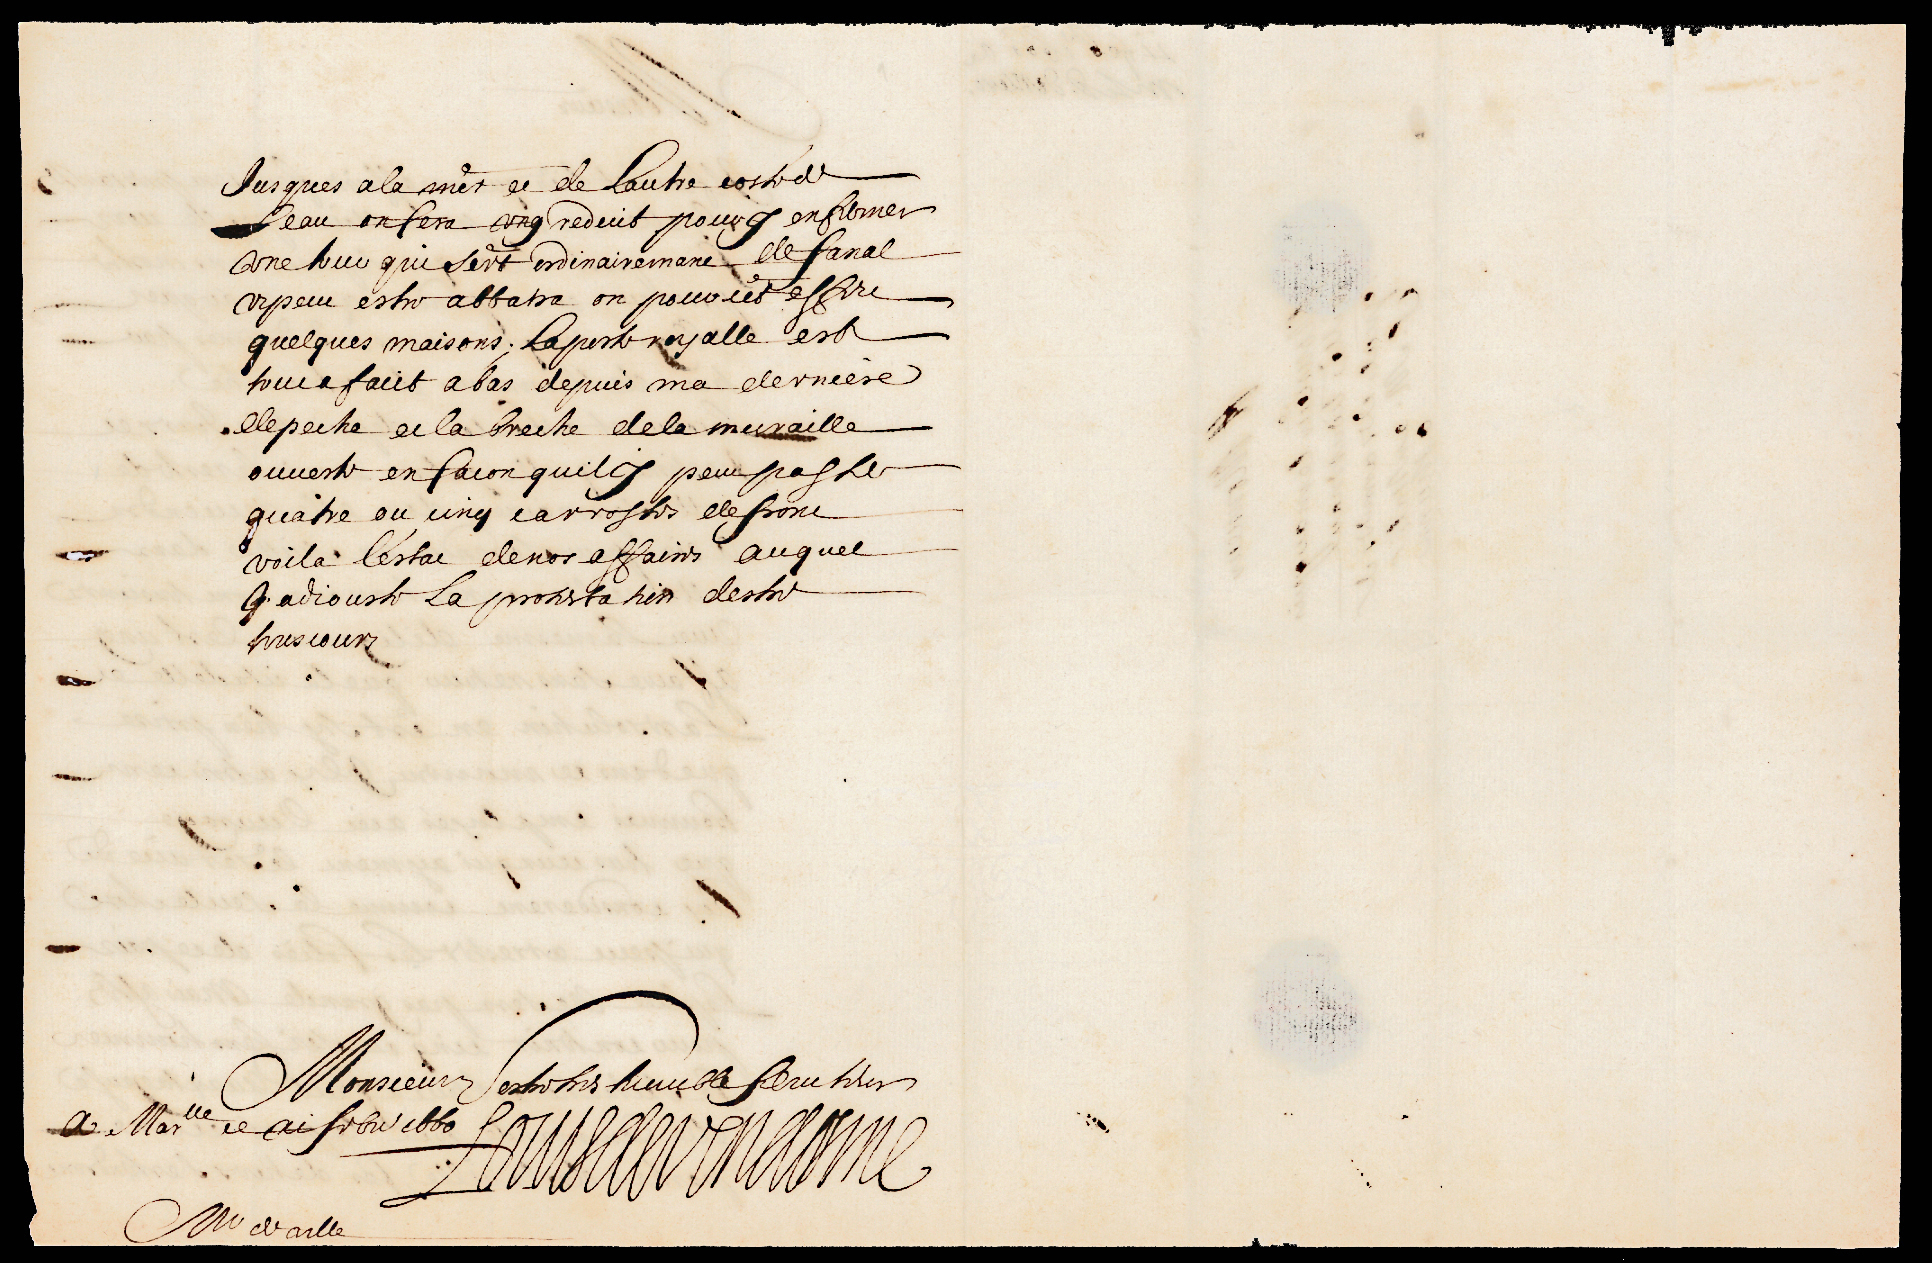 Jusques a la mer et de Lautre costé de
Leau on fera ung reduit pour y enfermer
une tour qui sert ordinairemant de fanal
n peut estre abbatra on pour cet effet
quelques maisons; La porte royalle est
tout a fait a bas depuis ma derniere
depeche et la breche de la muraille
ouverte en facon quil y peut passer
quatre ou cinq carrosses de front
voila l'estat de nos affaires auquel
J adiouste La protestation destre
tousiours
Monsieur Vostre tres humble serviteur
A Marlle ce febvrier 1660 Louis de Vendosme
Mr de